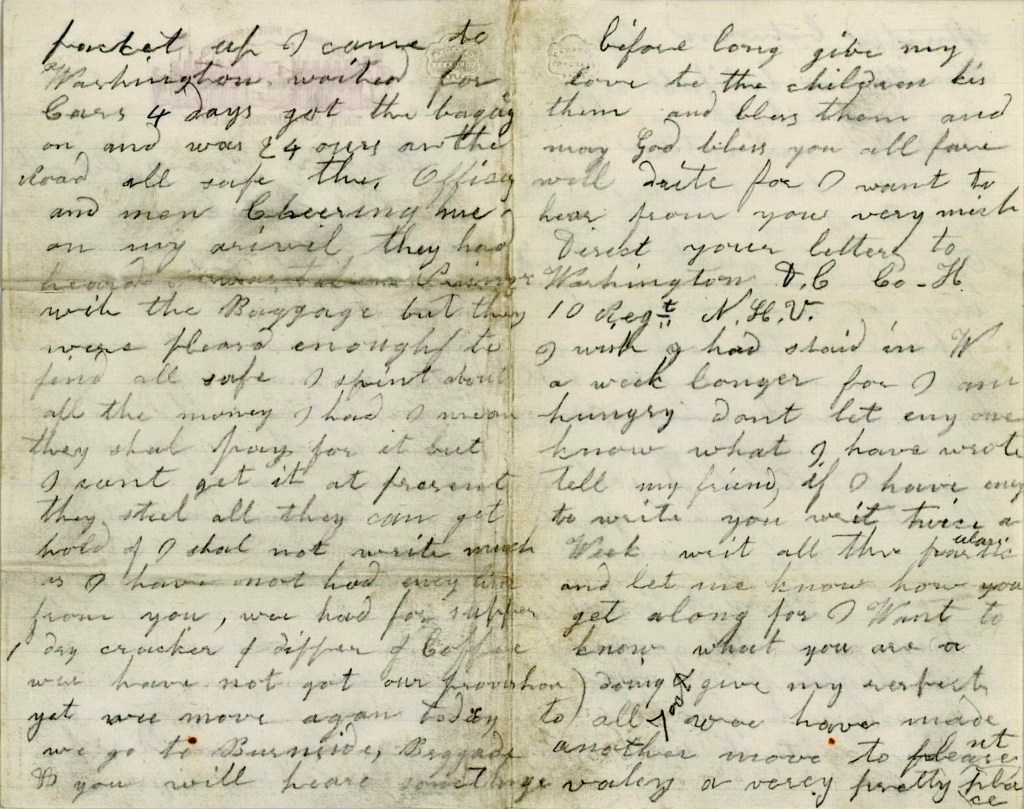 packet up I came to
Washington waited for
Cars 4 days got the bagag
on and was 24 ours on the
Road all safe the, Officer
and men Cheering me
on my arivil they had
heard I was taken Prisoner
with the Baggage but they
were pleasd enough to
find all safe I spent about
all the money I had I mean
they shal pay for it but
I cant get it at present
they steel all they can get
hold of I shal not write much
as I have not had eney line
from you, wee had for supper
1 dry cracker 1 dipper of Coffee
wee have not got our provishon
yet wee move again today
we go to Burnside, Breggade
& you will heare something
before long give my
love to the children kis
them and bless them and
may God bless you all fare
well write for I want to
hear from you very much
Direct your letters to
Washington, D.C Co - H.
10 Regt N.H.V.
I wish I had staid in W
a week longer for I am
hungry dont let eny one
know what I have wrote
tell my friend, if I have eney
to write you writ, twice a
Week writ all the particulars
and let me know how you
get along for I Want to
know what you are a
doing give my respects
to all
wee have made
another move to pleasent
valey a verey pretty place